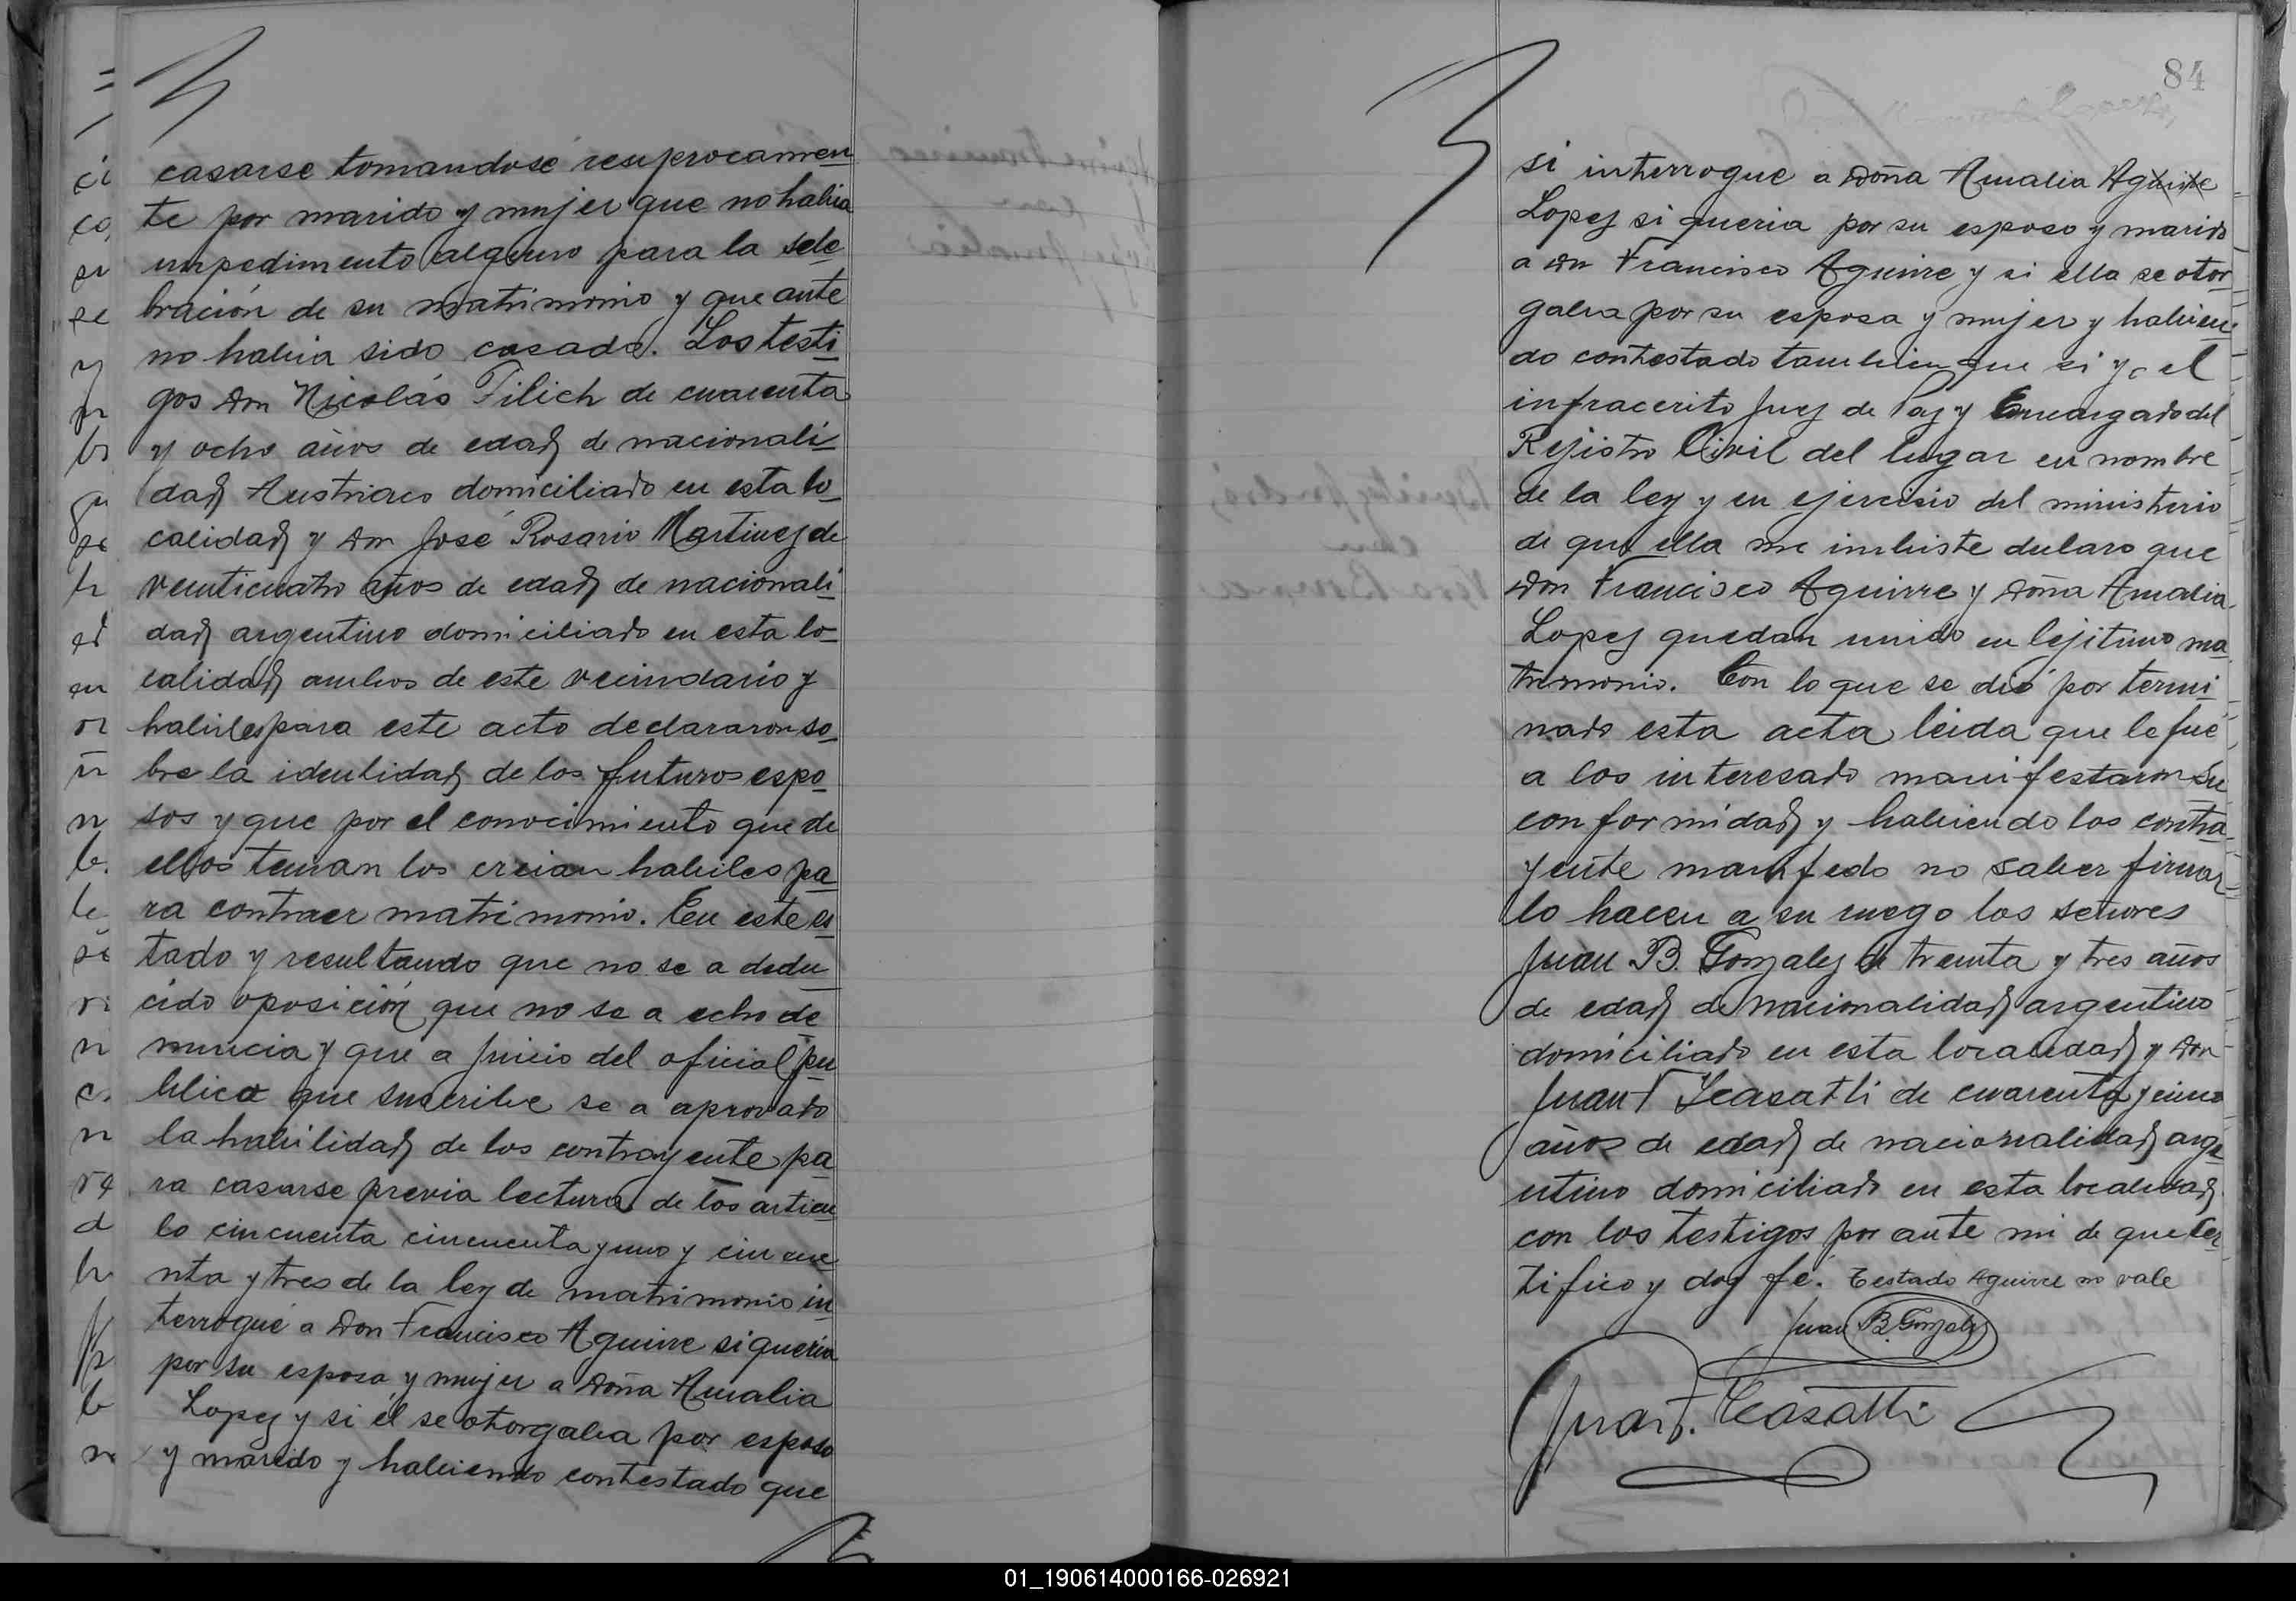 casarse tomandose resiprocamen
te por marido y mujer que no habia
impedimento alguno para la sele
bración de su matrimonio y que ante
no habia sido casada. Los testi
gos Don Nicolás Tilich de cuarenta
y ocho años de edad de nacionali
dad Austriaco domiciliado en esta lo
calidad y Don José Rosario Martinez de
veinticuatro años de edad de nacionali
dad argentino domiciliado en esta lo
calidad ambos de este vecindario y
habiles para este acto declararon so
bre la identidad de los futuros espo
sos y que por el conocimiento que de
ellos tenian los creian habiles pa
ra contraer matrimonio. En este es
tado y resultando que no se a dedu
cido oposición que no se a echo de
nuncia y que a juicio del oficial pu
blico que suscribe se a aprovado
la habilidad de los contrayente pa
ra casarse previa lectura de los articu
lo cincuenta cincuenta y uno y cincue
nta y tres de la ley de matrimonio in
terrogué a Don Francisco Aguirre si queria
por su esposa y mujer a Doña Amalia
Lopez y si él se otorgaba por esposo
y marido y habiendo contestado que
84
si interrogue a Doña Amalia Aguirre
Lopez si queria por su esposo y marido
a Don Francisco Aguirre y si ella se otor
gaba por su esposa y mujer y habien
do contestado tambien que si yo el
infracerito Juez de Paz y Encargado del
Rejistro Civil del lugar en nombre
de la ley y en ejercisio del ministerio
de que ella me imbiste declaro que
Don Francisco Aguirre y Doña Amalia
Lopez quedan unido en lejitimo ma
trimonio. Con lo que se dió por termi
nado esta acta leida que le fué
a los interesado manifestaron su
conformidad y habiendo los contra
yente manifedo no saber firmar
lo hacen a su ruego los señores
Juan B. Gonzalez de treinta y tres años
de edad de nacionalidad argentino
domiciliado en esta localidad y Don
Juan T Scasatti de cuarenta y cinco
años de edad de nacionalidad arge
ntino domiciliado en esta localidad
con los testigos por ante mi de que cer
tifico y doy fé. Testado Aguirre no vale
Juan B. Gonzalez
Juan T. Scasatti
01_190614000166-026921